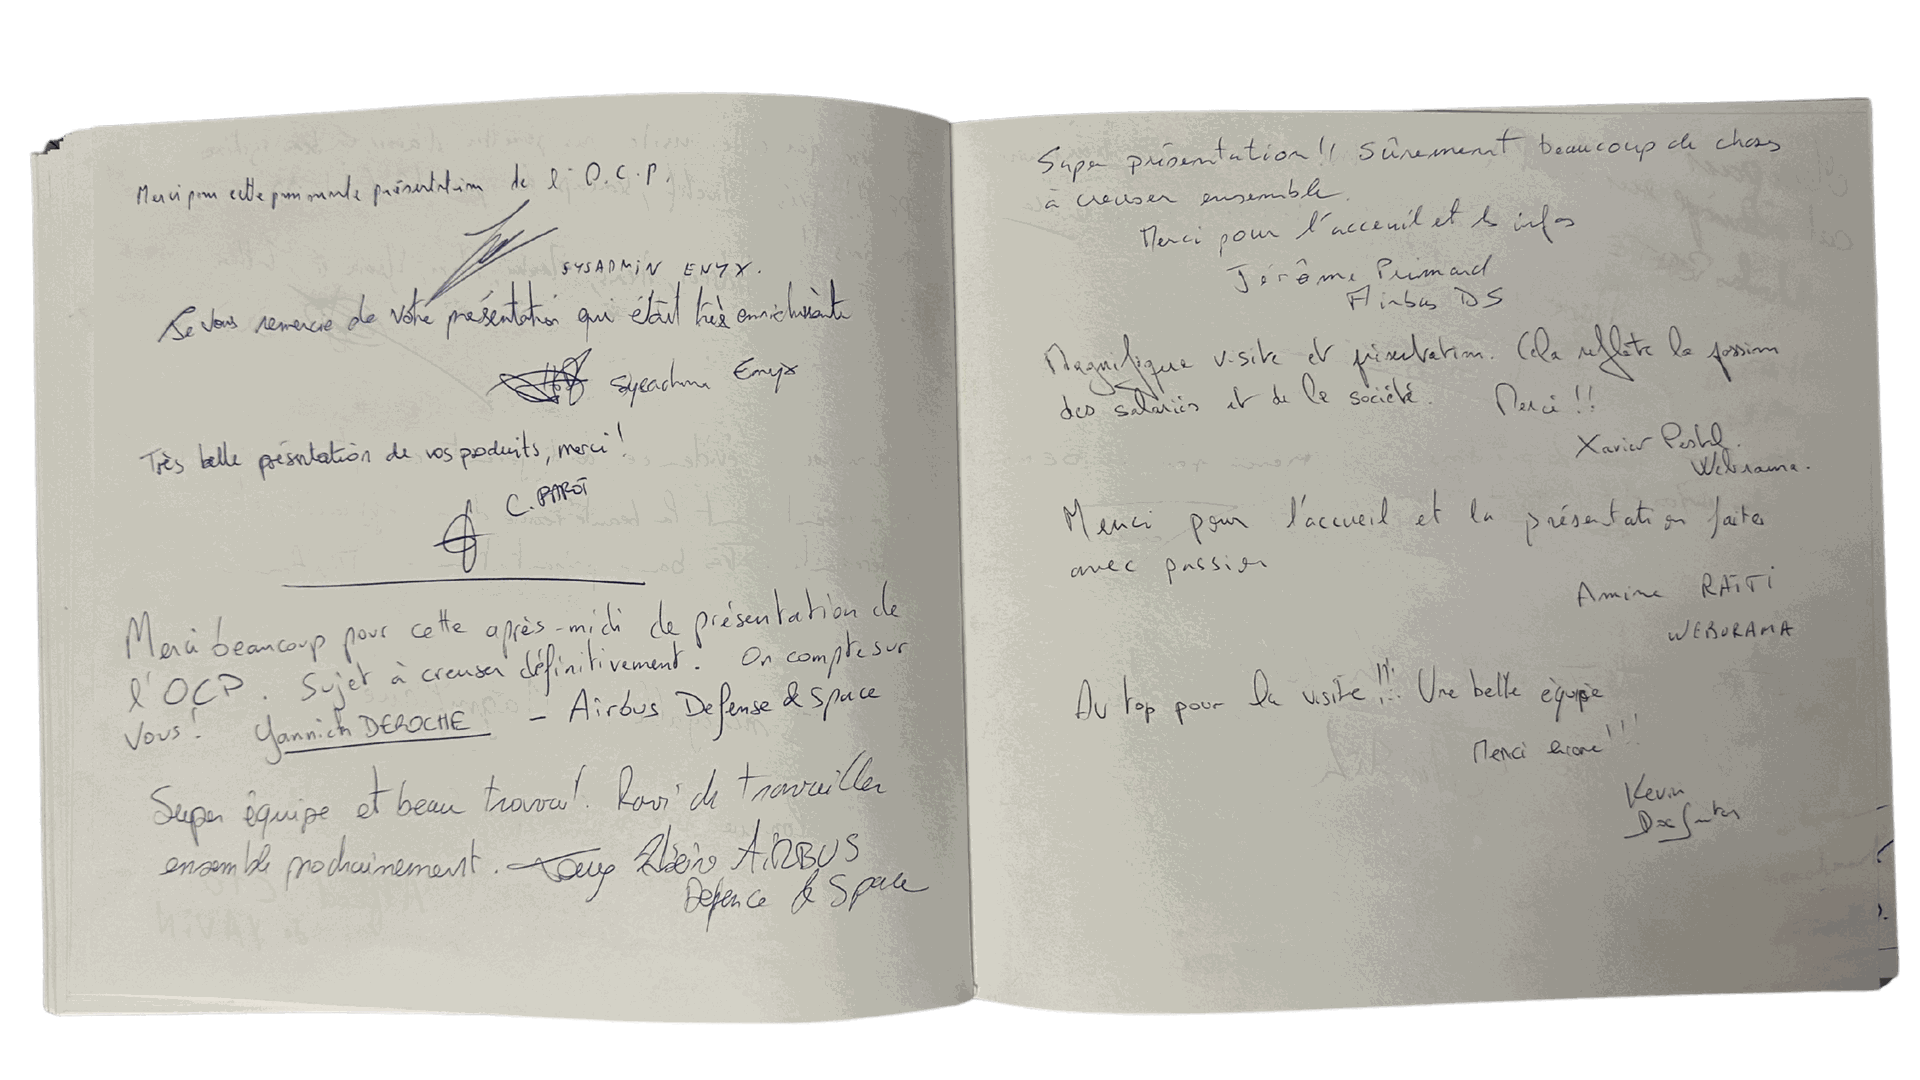 Merci pour cette passionnante présentation de l' O.C.P.
SYSADMIN ENYX.
Je vous remercie de votre présentation qui était très enrichissante
Sysadmin Enyx
Très belle présentation de vos produits, merci !
C. PAROT
Merci beaucoup pour cette après-midi de présentation de
l'OCP. Sujet à creuser définitivement. On compte sur
vous! Yannick DEROCHE - Airbus Defense & Space
Super équipe et beau travail. Ravi de travailler
ensemble prochainement. AIRBUS
Defence & Space
Super présentation !! Sûrement beaucoup de choses
à creuser ensemble.
Merci pour l'acceuil et les infos
Jérôme Primard
Airbus DS
Magnifique visite et présentation. Cela reflète la passion
des salariés et de la société. Merci !!
Xavier
Weborama.
Merci pour l'accueil et la présentation faites
avec passion
Amine RAITI
WEBORAMA
Au top pour la visite !!! Une belle équipe
Merci encore !!!
Kevin